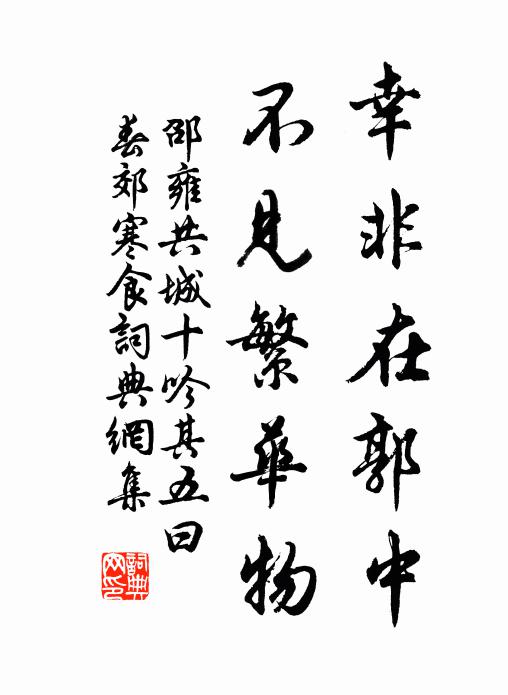 幸非在郭中
不見繁華物
邵雍共城十吟其五曰
春郊寒食詞典網集
詞典
网印